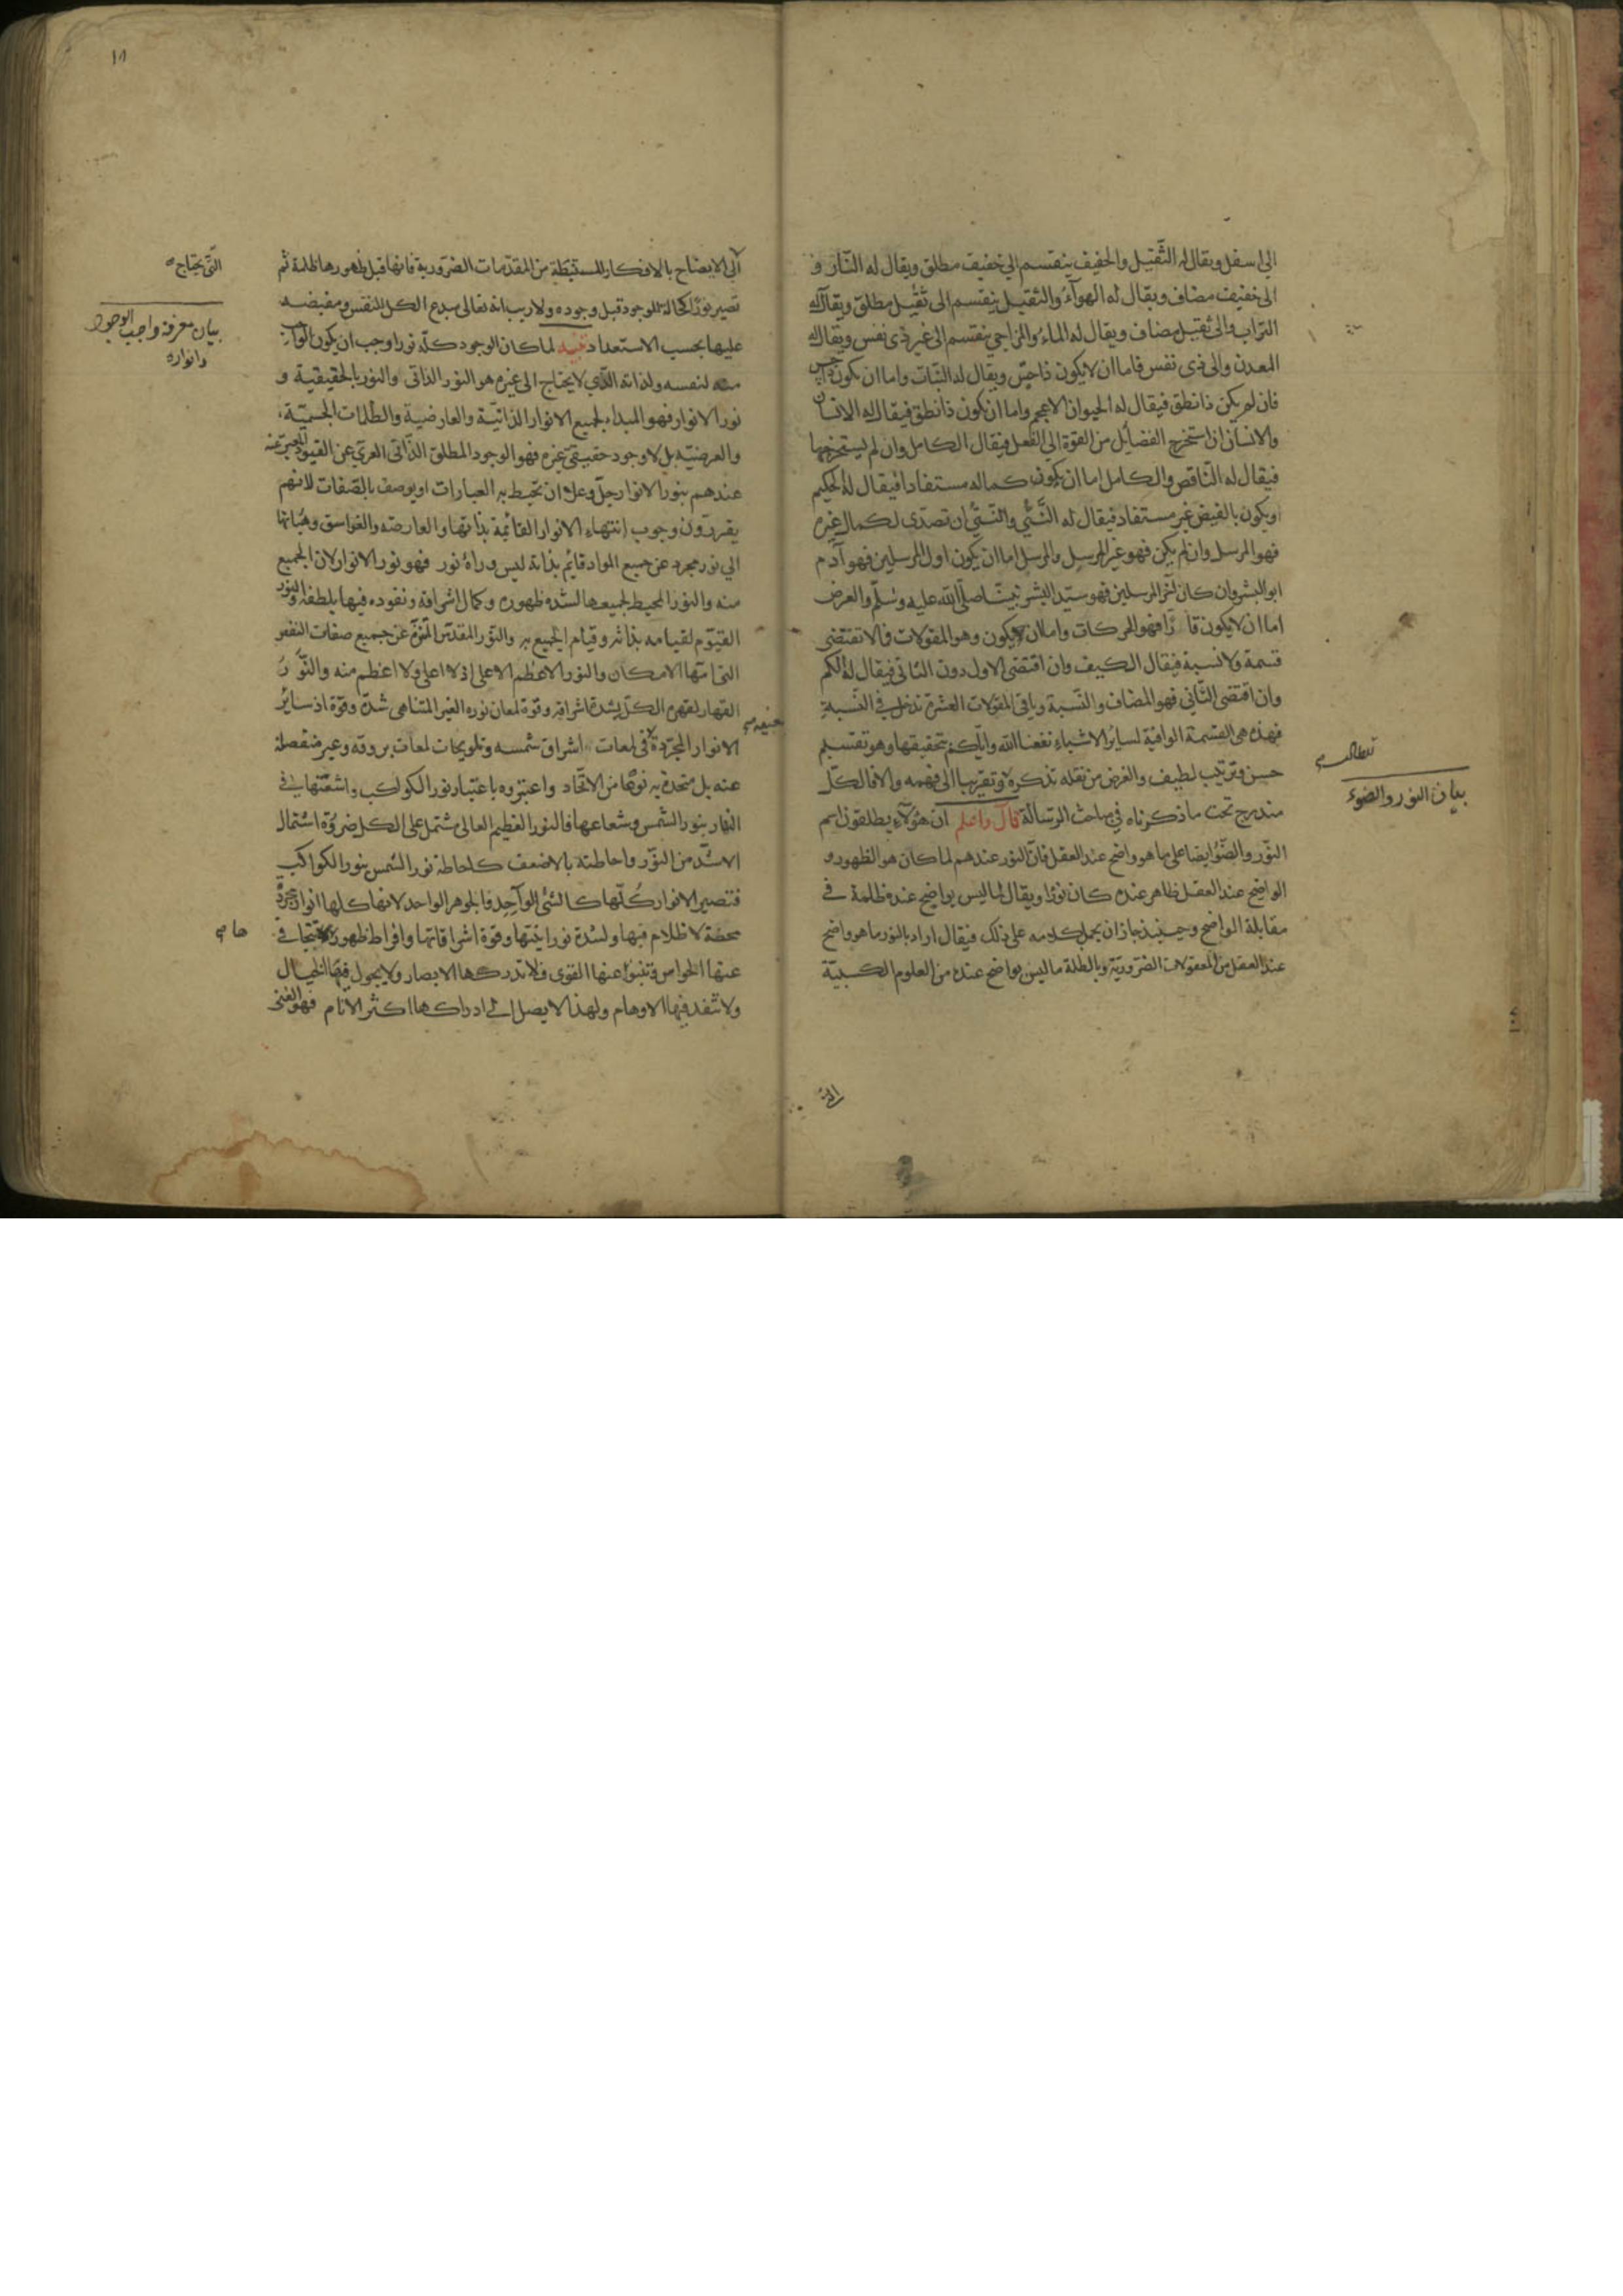 الى سفل ويقال له الثقيل والخفيف ينقسم الى خفيف مطلق ويقال له النار و
الى خفيف مضاف ويقال له الهوآء والثقيل ينقسم الى ثقيل مطلق ويقال له
التراب والى ثقيل مضاف ويقال له الماء والمزاجي ينقسم الى غير ذى نفس ويقال له
المعدن والى ذى نفس فاما ان لا يكون ذا حس ويقال له النبات واما ان يكون ذا حس
فان لم يكن ذا نطق فيقال له الحيوان الاعجم واما ان يكون ذا نطق فيقال له الانسان
والانسان ان استخرج الفضائل من القوة الى الفعل فيقال الكامل وان لم يستخرجها
فيقال له الناقص والكامل اما ان يكون كماله مستفادا فيقال له الحكيم
او يكون بالفيض غير مستفاد فيقال له النبي والنبي ان تصدى لكمال غيره
فهو المرسل وان لم يكن فهو غير المرسل والمرسل اما ان يكون اول المرسلين فهو آدم
ابو البشر وان كان آخر المرسلين فهو سيد البشر نبينا صلى الله عليه وسلم والعرض
اما ان لا يكون قارا فهو الحركات واما ان لا يكون وهو المقولات فما لا تقتضى
قسمة ولا نسبة فيقال الكيف وان اقتضى الاول دون الثانى فيقال له الكم
وان اقتضى الثاني فهو المضاف والنسبة وباقى المقولات العشرة تدخل في النسبة
فهذه هى القسمة الوافية لساير الاشياء نفعنا الله واياكم بتحقيقها وهو تقسيم
حسن وترتيب لطيف والغرض من نقله تذكرة وتقريبا الى فهمه والا فالكل
مندرج تحت ما ذكرناه في مباحث الرسالة قال واعلم ان هؤلآء يطلقون اسم
النور والضوء ايضا على ما هو واضح عند العقل فان النور عندهم لما كان هو الظهور و
الواضح عند العقل ظاهر عنده كان نورا ويقال لما ليس بواضح عنده ظلمة في
مقابلة الواضح وحينئذ جاز ان يحمل كلامه على ذلك فيقال اراد بالنور ما هو واضح
عند العقل من المعقولات الضرورية وبالظلمة ما ليس بواضح عنده من العلوم الكسبية
بيان النور والضوء
التى
١٨
الى الايضاح بالافكار المستنبطة من المقدمات الضرورية فانها قبل ظهورها ظلمة ثم
تصير نورا كحالة الموجود قبل وجوده ولا ريب انه تعالى مبدع الكل للنفس ومفيضه
عليها بحسب الاستعداد تنبيه لما كان الوجود كله نورا وجب ان يكون الواجب
منه لنفسه ولذاته الذي لا يحتاج الى غيره هو النور الذاتى والنور بالحقيقية و
نور الانوار فهو المبداء لجميع الانوار الذاتية والعارضية والظلمات الجسمية
والعرضية بل لا وجود حقيقى غيره فهو الوجود المطلق الذاتى العرى عن القيود المعبر عنه
عندهم بنور الانوار جل وعلا ان تحيط به العبارات او يوصف بالصفات لانهم
يقررون وجوب انتهاء الانوار القائمة بذاتها والعارضه والغواسق وهيأتها
الى نور مجرد عن جميع المواد قائم بذاته ليس وراءه نور فهو نور الانوار لان الجميع
منه والنور المحيط لجميعها لشدة ظهوره وكمال اشراقه ونفوده فيها بلطفه والنور
القيوم لقيامه بذاته وقيام الجميع به والنور المقدس المنزه عن جميع صفات النقص
التى منها الامكان والنور الاعظم الاعلى اذ لا اعلى ولا اعظم منه والنور
القهار لقهره الكل بشدة اشراقه وقوة لمعان نوره الغير المتناهى شدة وقوة اذ ساير
الانوار المجردة لمعات اشراق شمسه وتلويحات لمعات بروقه وغير منفصلة
عنه بل متحدة به نوعا من الاتحاد واعتبروه باعتبار نور الكواكب واشعتها في
النهار بنور الشمس وشعاعها فالنور العظيم العالى مشتمل على الكل ضرورة اشتمال
الاشد من النور واحاطته بالاضعف كاحاطة نور الشمس بنور الكواكب
فتصير الانوار كلها كالشئ الواحد والجوهر الواحد لانها كلها انوار مجردة
محضة لا ظلام فيها ولشدة نورانيتها وقوة اشراقاتها وافراط ظهورها تتجافى
عنها الحواس وتنبوا عنها القوى فلا تدركها الابصار ولا يجول فيها الخيال
ولا تنفد فيها الاوهام ولهذا لا يصل الى ادراكها اكثر الانام فهو الغنى
التى يحتاج
بيان معرفة واجب الوجود
وانواره